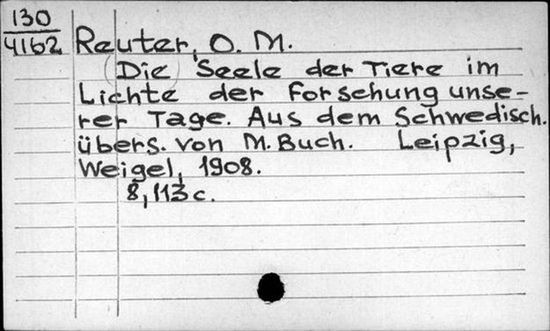 130
4162
Reuter, O. M.
(Die) Seele der Tiere im
Lichte der Forschung unse-
rer Tage. Aus dem Schwedisch.
übers. von M. Buch. Leipzig,
Weigel, 1908.
8, 113 c.